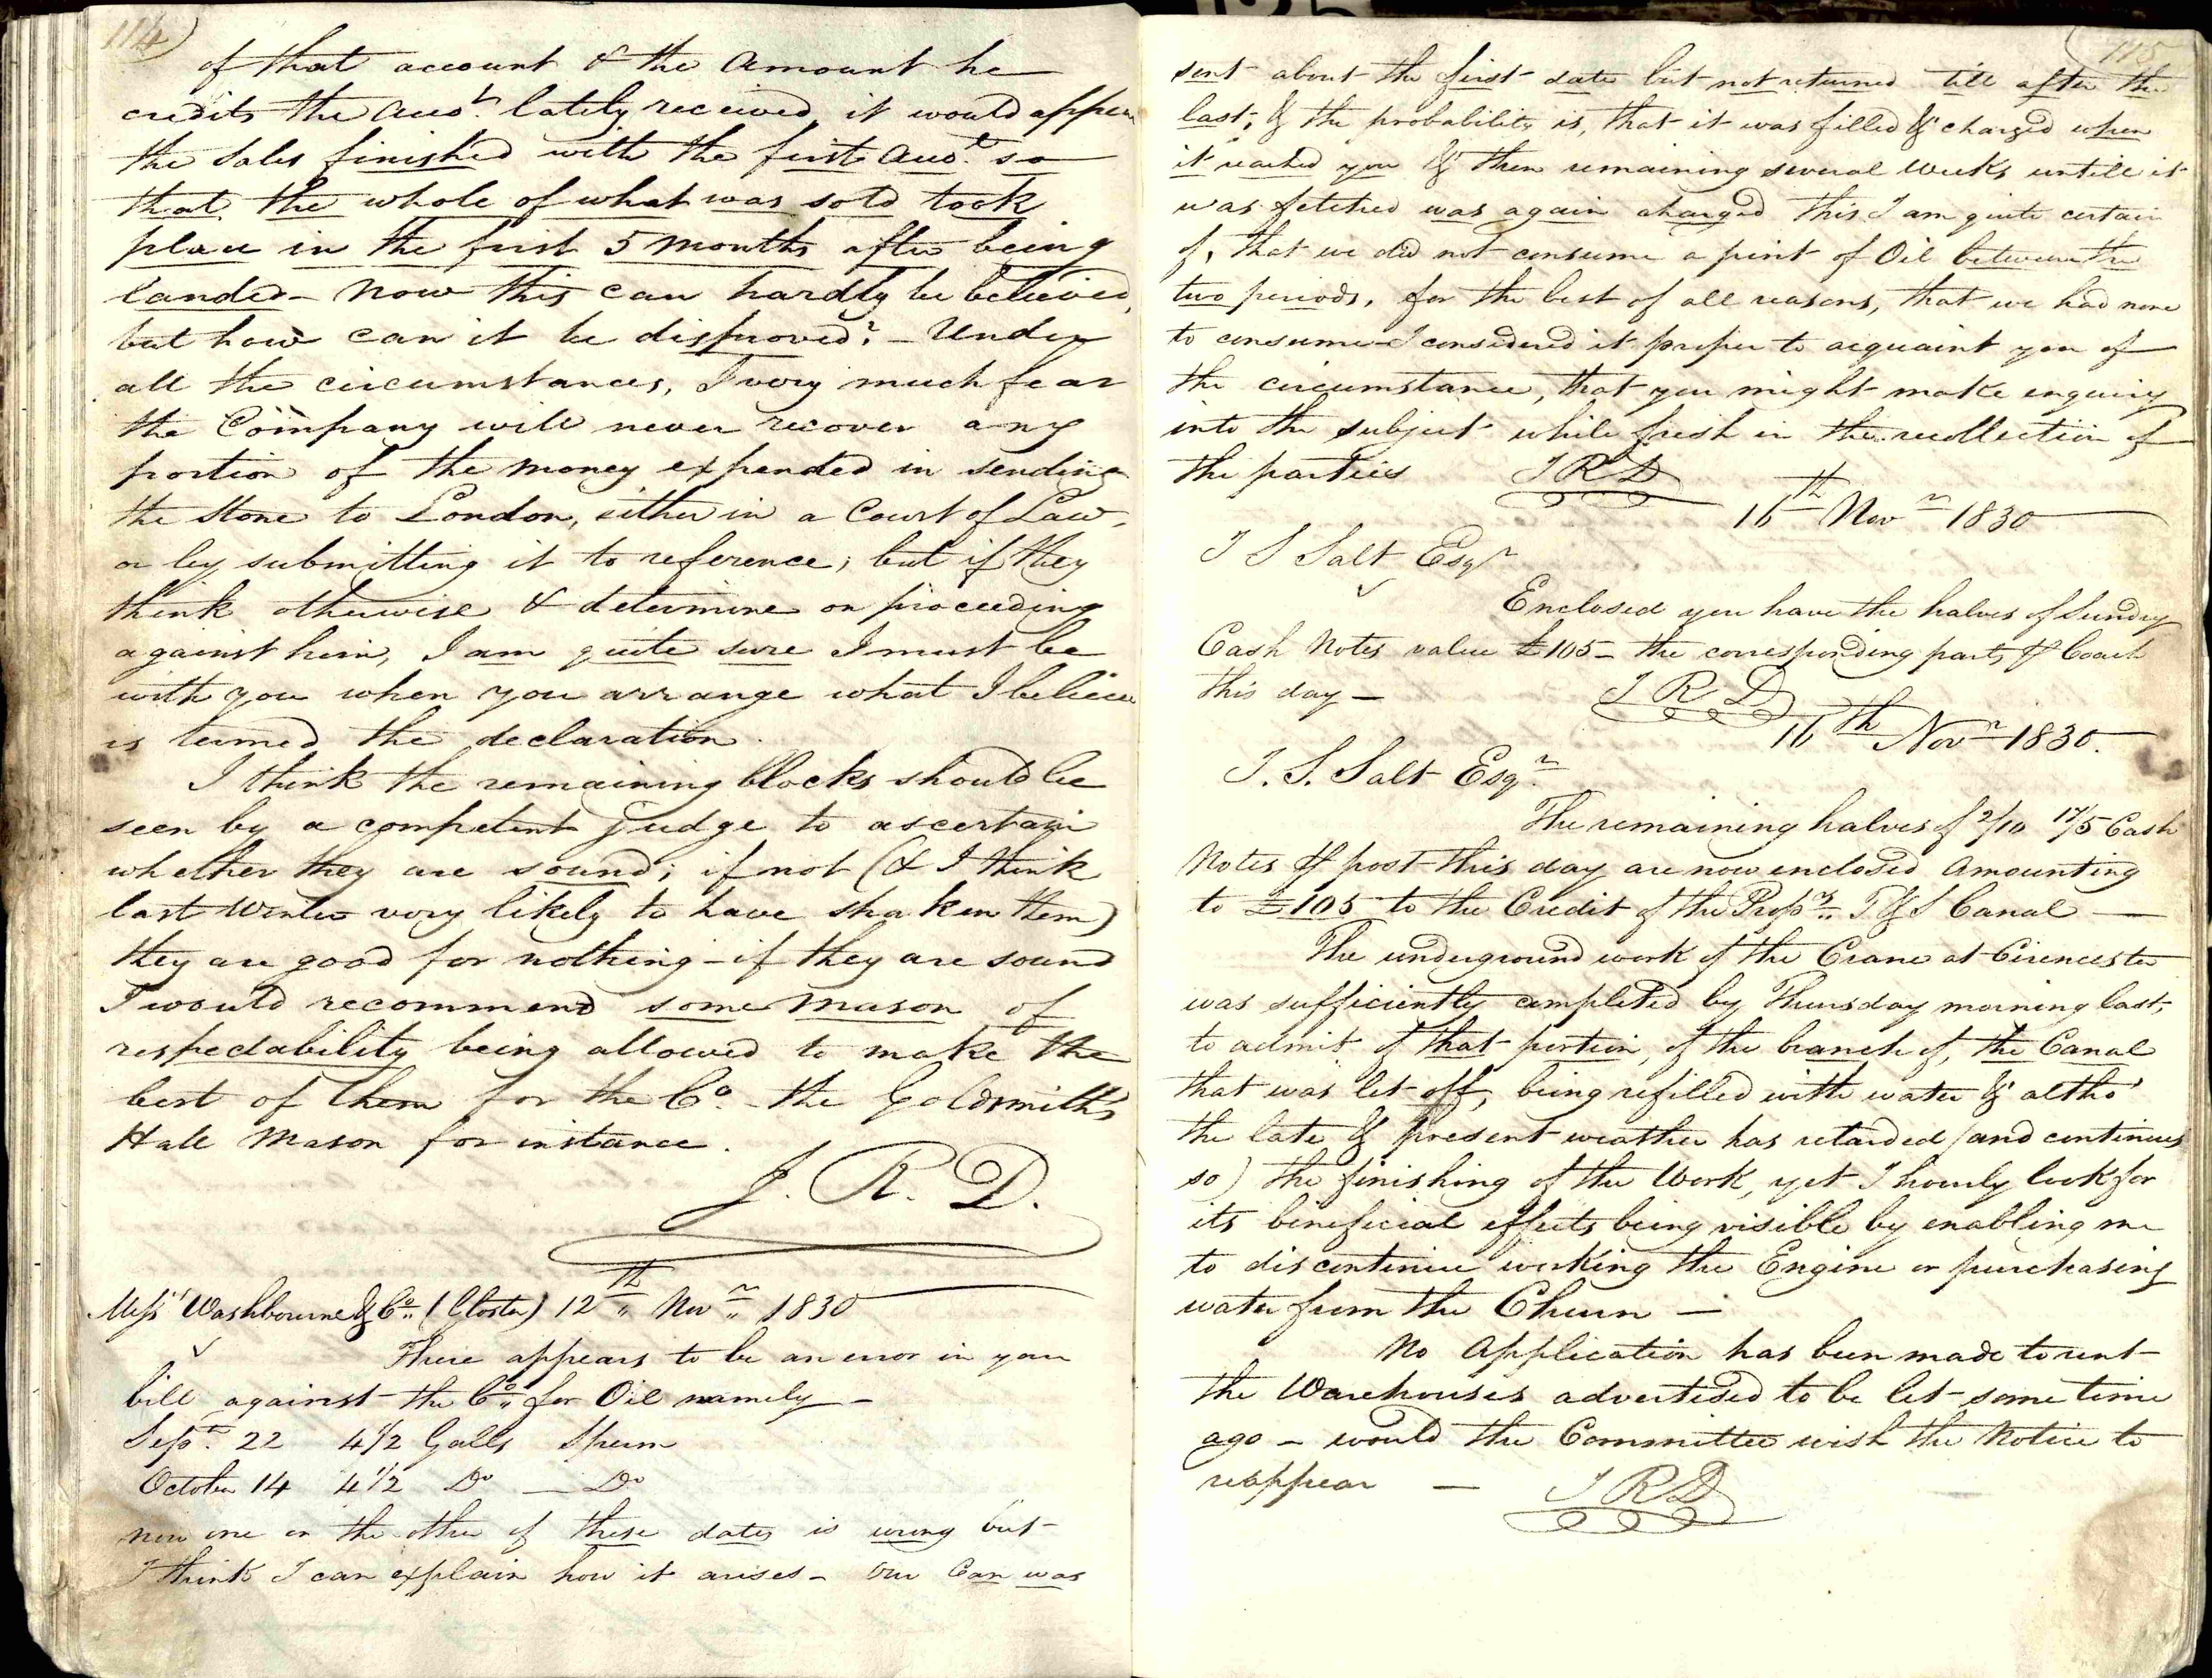 114)
of that account & the Amount he
credits the Acco.t lately received, it would appear
the Sales finished with the first Acco.t so
that the whole of what was sold took
place in the first 5 Months after being
landed - Now this can hardly be believed,
but how can it be disproved? - Under
all the circumstances, I very much fear
the Company will never recover any
portion of the Money expended in sending
the Stone to London, either in a Court of Law,
or by submitting it to reference; but if they
think otherwise & determine on proceeding
against him, I am quite sure I must be
with you when you arrange what I believe
is termed the declaration.
I think the remaining blocks should be
seen by a competent judge to ascertain
whether they are sound; if not (& I think
last Winter very likely to have shaken them)
they are good for nothing - if they are sound
I would recommend some Mason of
respectability being allowed to make the
best of them for the Co. - the Goldsmith's
Hall Mason for instance.
J. R. D.
Messrs Washbourne & Co. (Gloster) 12th Novr 1830
There appears to be an error in your
bill against the Co. for Oil namely -
Sept. 22 4 1/2 Galls Sperm
October 14 4 1/2 Do - Do
now one or the other of these dates is wrong but
I think I can explain how it arises - Our Can was
115
sent about the first date but not returned till after the
last; & the probability is, that it was filled & charged when
it reached you & then remaining several weeks untill it
was fetched was again charged this I am quite certain
of, that we did not consume a pint of Oil between the
two periods, for the best of all reasons, that we had none
to consume - I considered it proper to acquaint you of
the circumstance, that you might make enquiry
into the subject while fresh in the recollection of
the parties J R D
16th Novr 1830
J S Salt Esqr
Enclosed you have the halves of Sundry
Cash Notes value £105 - the corresponding parts & Coach
this day - J R D
16th Novr 1830.
J. S. Salt Esqr
The remaining halves of 2/10 17/5 Cash
Notes & post this day are now enclosed Amounting
to £105 to the Credit of the Proprs. T & S Canal -
The underground work of the Crane at Cirencester
was sufficiently completed by Thursday morning last,
to admit of that portion, of the branch of, the Canal
that was let off, being refilled with water & altho'
the late & present weather has retarded (and continues
so) the finishing of the Work, yet I hourly look for
its beneficial effects being visible by enabling me
to discontinue working the Engine or purchasing
water from the Churn -
No Application has been made to rent
the Warehouses advertised to be let some time
ago - would the Committee wish the Notice to
reappear - J R D